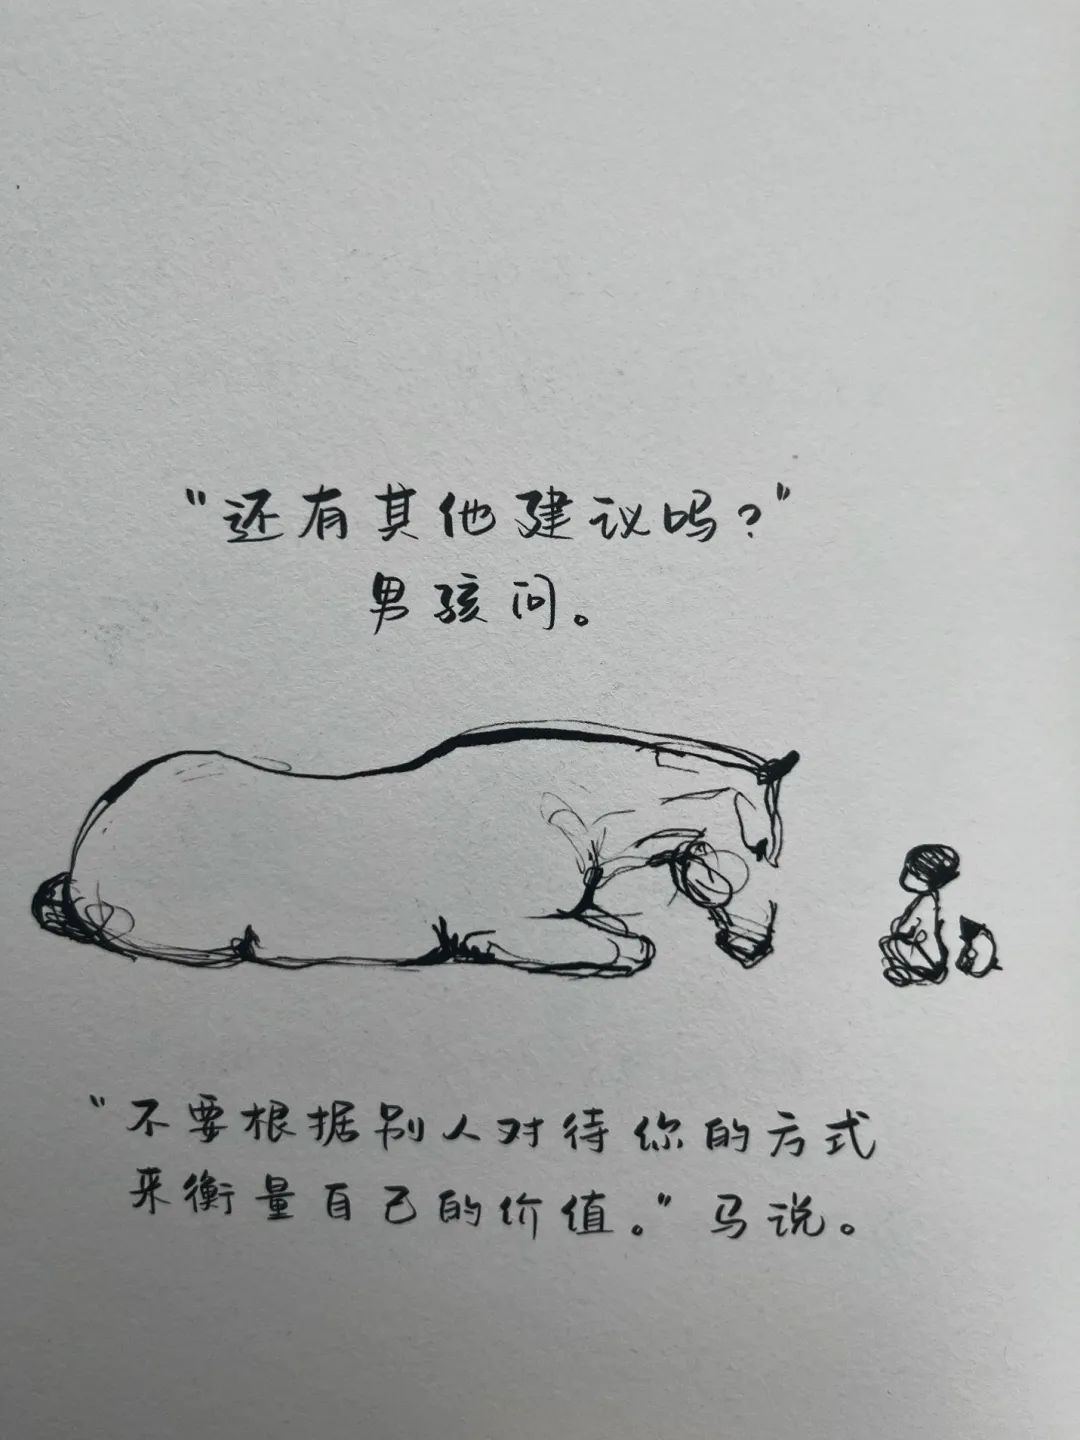 “还有其他建议吗？”
男孩问。
“不要根据别人对待你的方式
来衡量自己的价值。”马说。